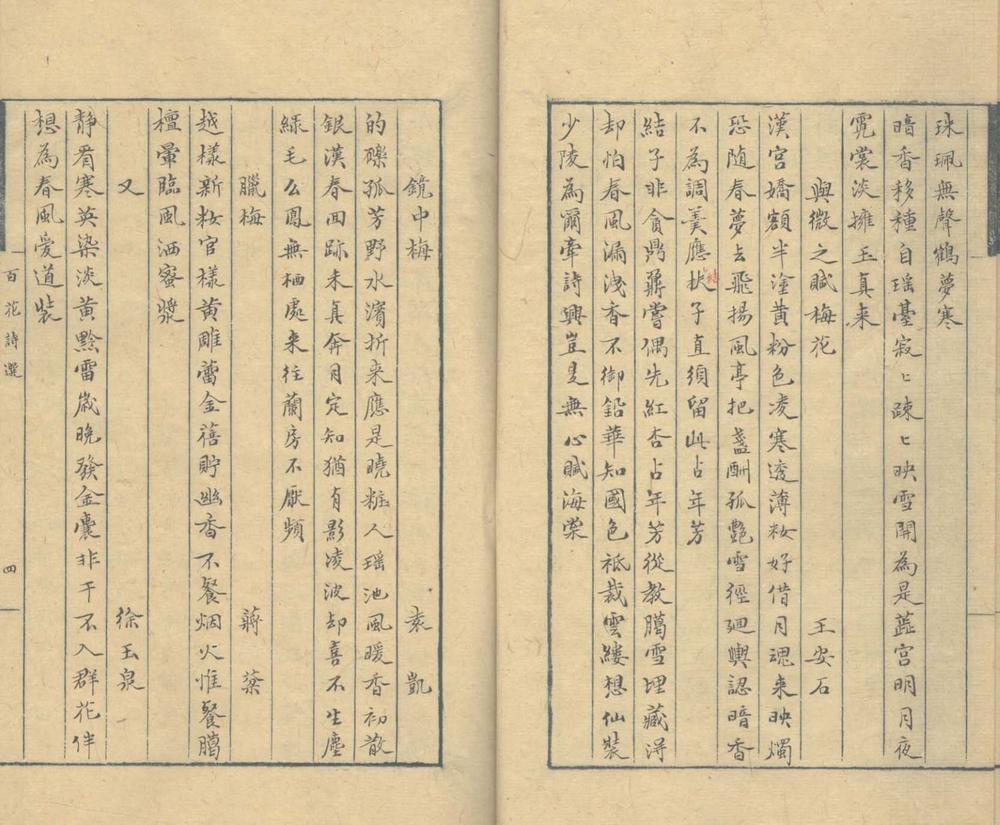 珠珮無聲鶴夢寒
暗香移種自瑶臺寂〻踈〻映雪開為是蕋宮明月夜
霓裳淡擁玉真来
與微之賦梅花 王安石
漢宮嬌額半塗黃粉色凌寒透薄妝好借月魂来映燭
恐随春夢去飛揚風亭把盞酬孤艷雪徑廻輿認暗香
不為調羹應狀子直須留此占年芳
結
結子非貪鼎鼐嘗偶先紅杏占年芳從教臈雪埋藏得
却怕春風漏洩香不御鉛華知國色袛裁雲縷想仙裝
少陵為爾牽詩興豈是無心賦海棠
鏡中梅 袁凱
的礫孤芳野水濱折来應是曉粧人瑶池風暖香初散
銀漢春回跡未真奔月定知猶有影凌波却喜不生塵
綠毛么鳳無栖處来往蘭房不厭頻
臘梅 蔣葵
越様新妝官様黃雕蕾金蓓貯幽香不餐烟火惟餐臈
檀暈臨風洒蜜漿
又 徐玉泉
靜看寒英染淡黃黔雷歲晚發金囊非干不入群花伴
想為春風愛道裝
百花詩選
四